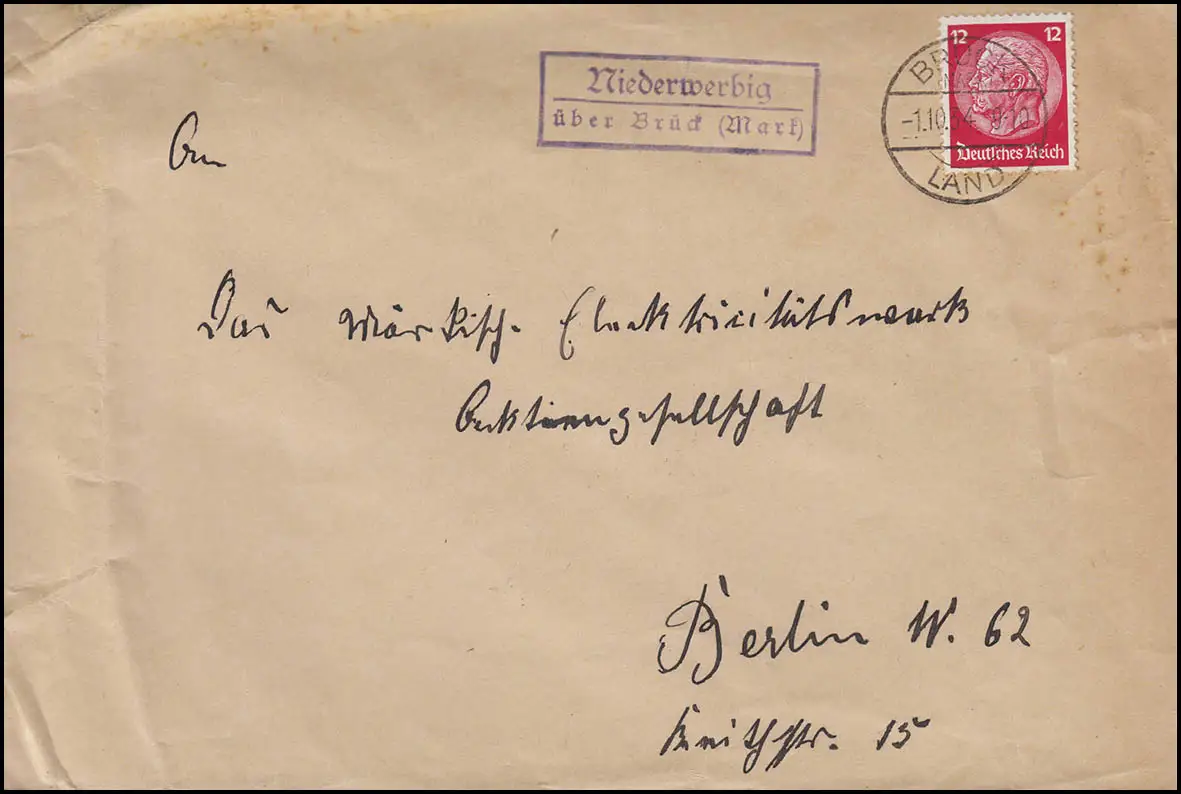 Niederwerbig
über Brück (Mark)
12 12
Deutsches Reich
BRÜCK
-1.10.34 9-10
LAND
An
Das Märkisch. Elecktricitätswerk
Acktiengesellschaft
Berlin W. 62
Keithstr. 15